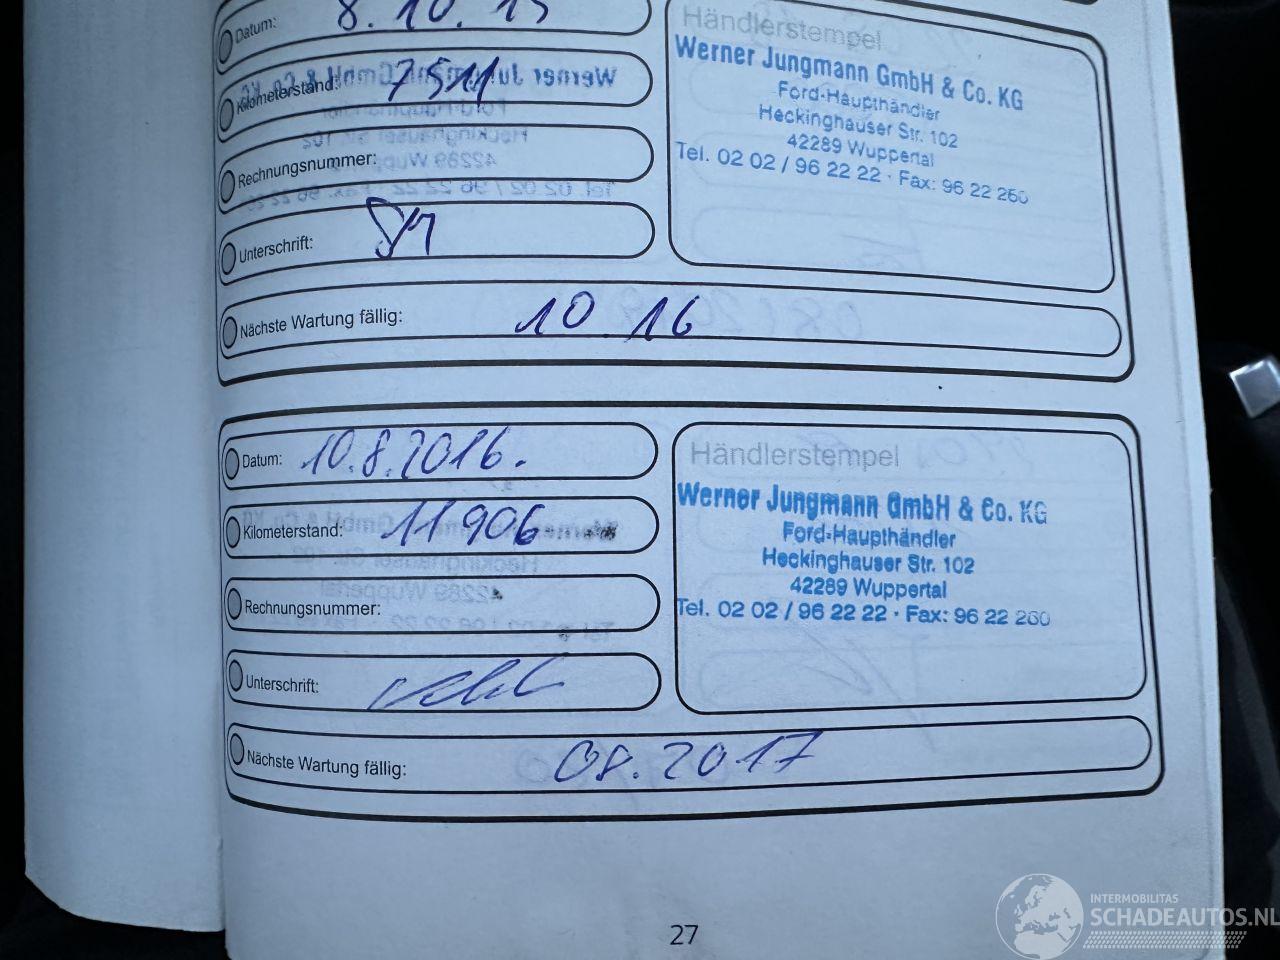 Datum: 8.10.15
Kilometerstand: 7511
Rechnungsnummer:
Unterschrift:
Nächste Wartung fällig: 10 16
Händlerstempel
Werner Jungmann GmbH & Co. KG
Ford-Haupthändler
Heckinghauser Str. 102
42289 Wuppertal
Tel. 02 02 / 96 22 22 · Fax: 96 22 260
Datum: 10.8.2016.
Kilometerstand: 11906
Rechnungsnummer:
Unterschrift:
Nächste Wartung fällig: 08.2017
Händlerstempel
Werner Jungmann GmbH & Co. KG
Ford-Haupthändler
Heckinghauser Str. 102
42289 Wuppertal
Tel. 02 02 / 96 22 22 · Fax: 96 22 260
27
INTERMOBILITAS
SCHADEAUTOS.NL